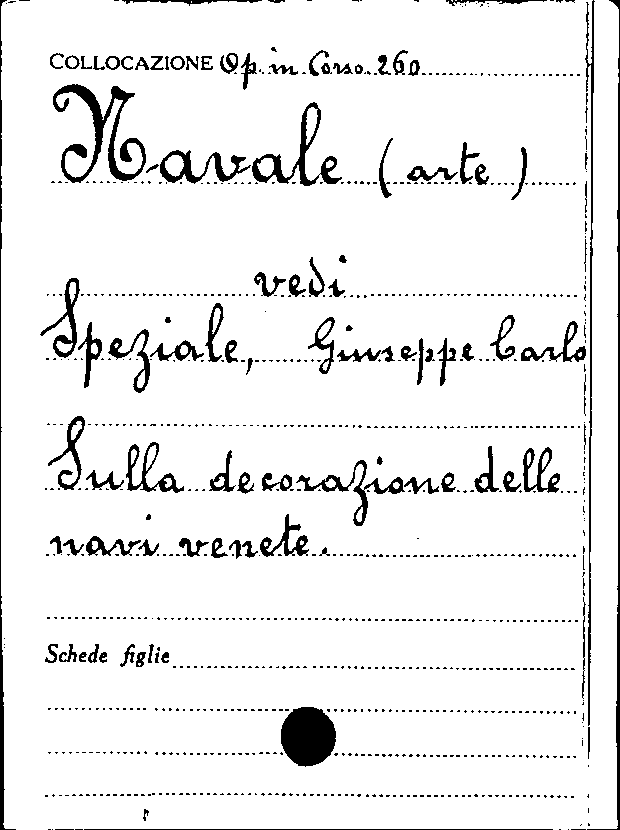 COLLOCAZIONE Op. in Corso 260
Navale (arte)
vedi
Speziale, Giuseppe Carlo
Sulla decorazione delle
navi venete.
Schede figlie